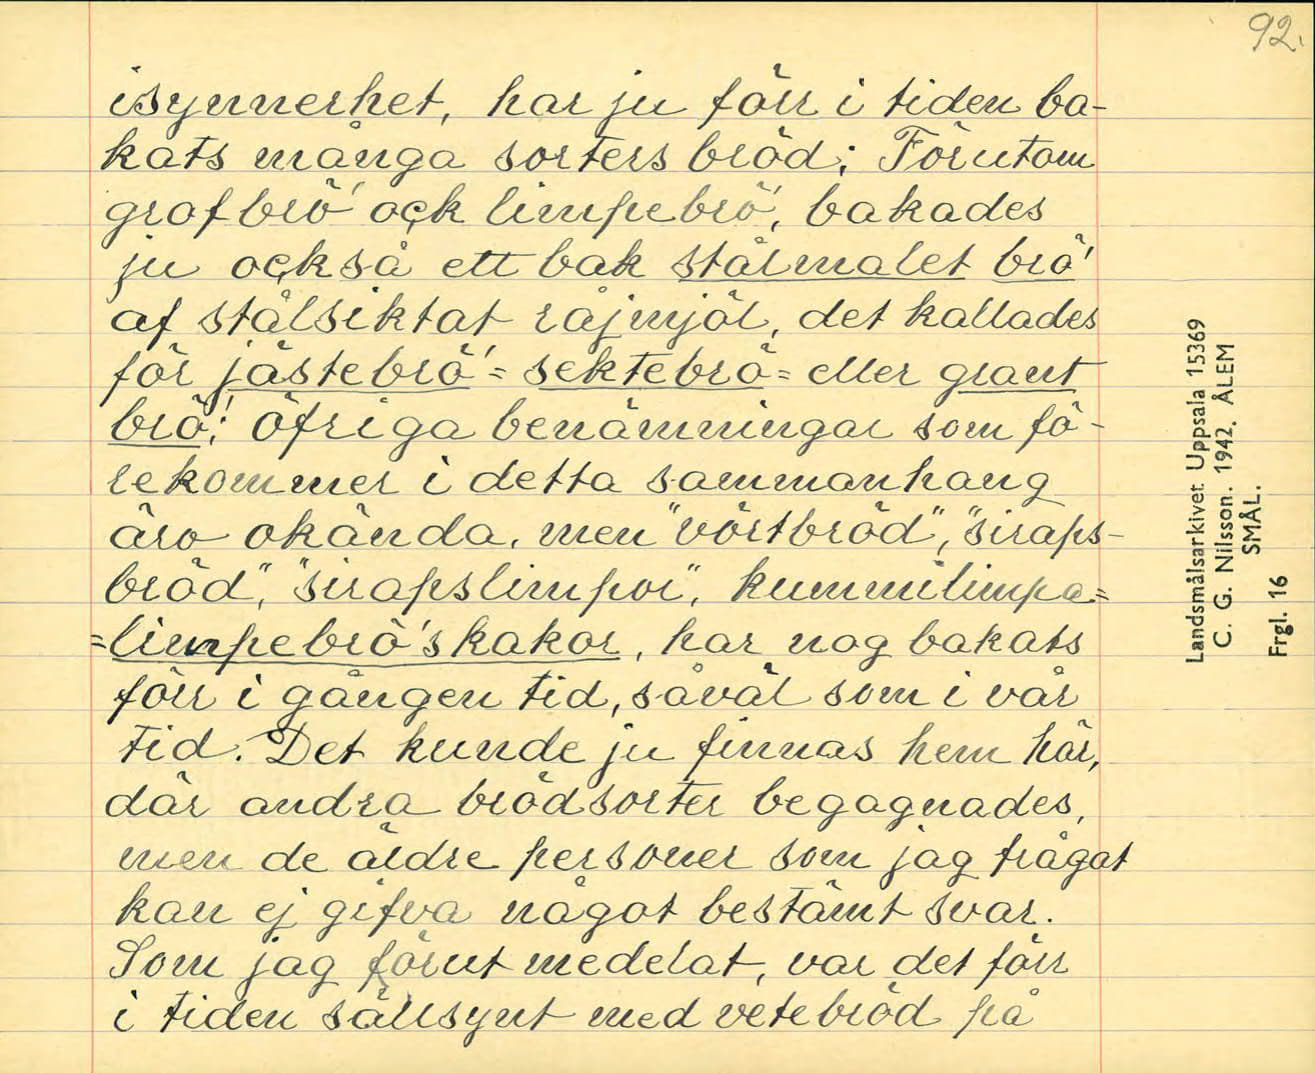 92.
isynnerhet, har ju förr i tiden ba-
kats många sorters bröd; Förutom
grofbrö' ock limpebrö', bakades
ju också ett bak stålmalet brö'
af stålsiktat råjmjöl, det kallades
för jästebrö'= sektebrö= eller grant
brö'! öfriga benämningar som fö-
rekommer i detta sammanhang
äro okända, men "vörtbröd", "siraps-
bröd", "sirapslimpor", kummilimpa=
=limpebrö'skakor, har nog bakats
förr i gången tid, såväl som i vår
tid. Det kunde ju finnas hem här,
där andra brödsorter begagnades,
men de äldre personer som jag frågat
kan ej gifva något bestämt svar.
Som jag förut medelat, var det förr
i tiden sällsynt med vetebröd på
Landsmålsarkivet Uppsala 15369
C. G. Nilsson. 1942. ÅLEM
SMÅL.
Frgl. 16